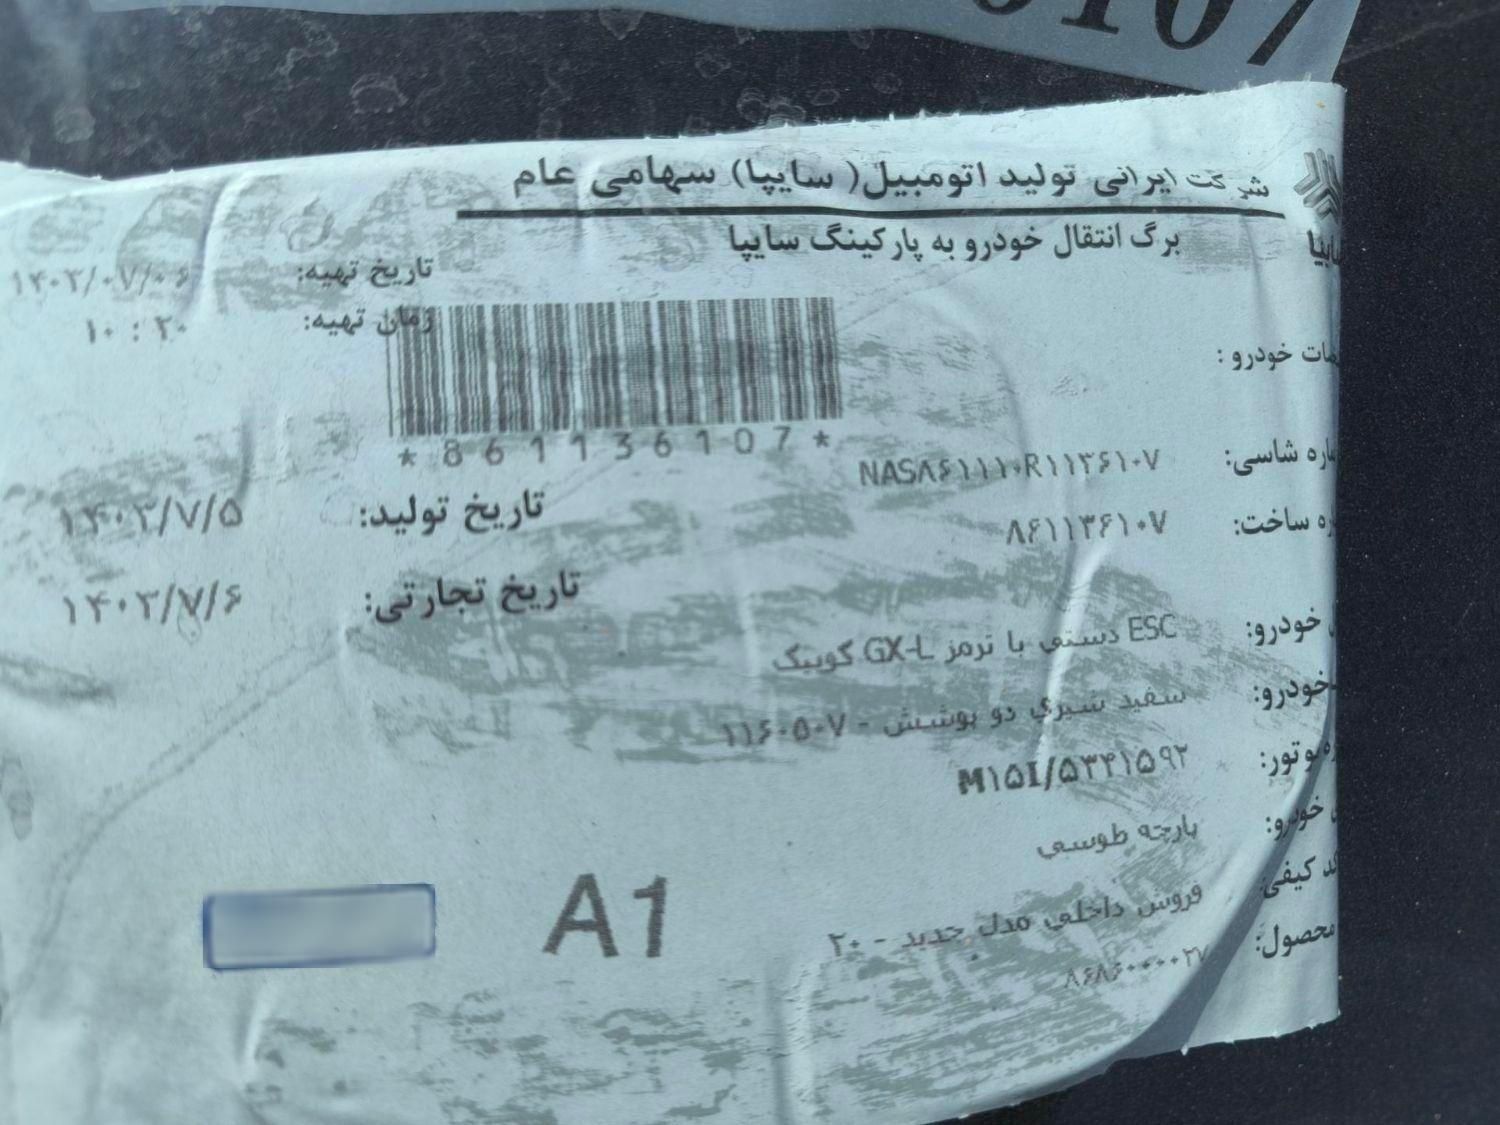 0107
شرکت ایرانی تولید اتومبیل( سایپا) سهامی عام
سایپا
برگ انتقال خودرو به پارکینگ سایپا
تاریخ تهیه: ۱۴۰۳/۰۷/۰۶
زمان تهیه: ۱۰ : ۲۰
خودرو :
*861136107*
شاسی: NAS۸۶۱۱۱۰R۱۱۳۶۱۰۷
ساخت: ۸۶۱۱۳۶۱۰۷
تاریخ تولید: ۱۴۰۳/۷/۵
تاریخ تجارتی: ۱۴۰۳/۷/۶
خودرو: ESC دستی با ترمز GX-L کوییک
خودرو: سفید شیری دو پوشش - ۱۱۶۰۵۰۷
موتور: M۱۵I/۵۳۴۱۵۹۲
خودرو: پارچه طوسی
کیفی: فروش داخلی مدل جدید - ۲۰
محصول: ۸۶۸۶۰۰۰۰۲۷
A1